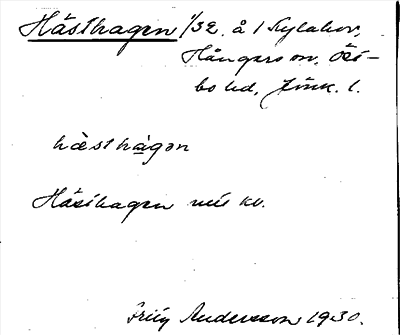 Hästhagen 1/32 å 1 Kylahov,
Hångers sn, Öst-
bo hd, Jönk. l.
hæsthagan
Hästhagen
Fritz Andersson 1930.